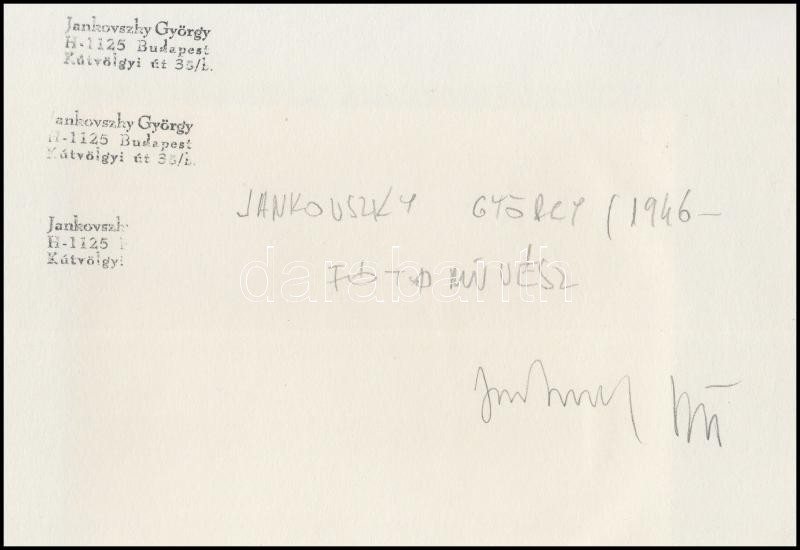 Jankovszky György
H-1125 Budapest
Kútvölgyi út 35/b.
Jankovszky György
H-1125 Budapest
Kútvölgyi út 35/b.
Jankovszky
H-1125
Kútvölgyi
JANKOVSZKY GYÖRGY (1946–
FOTOMŰVÉSZ
darabanth